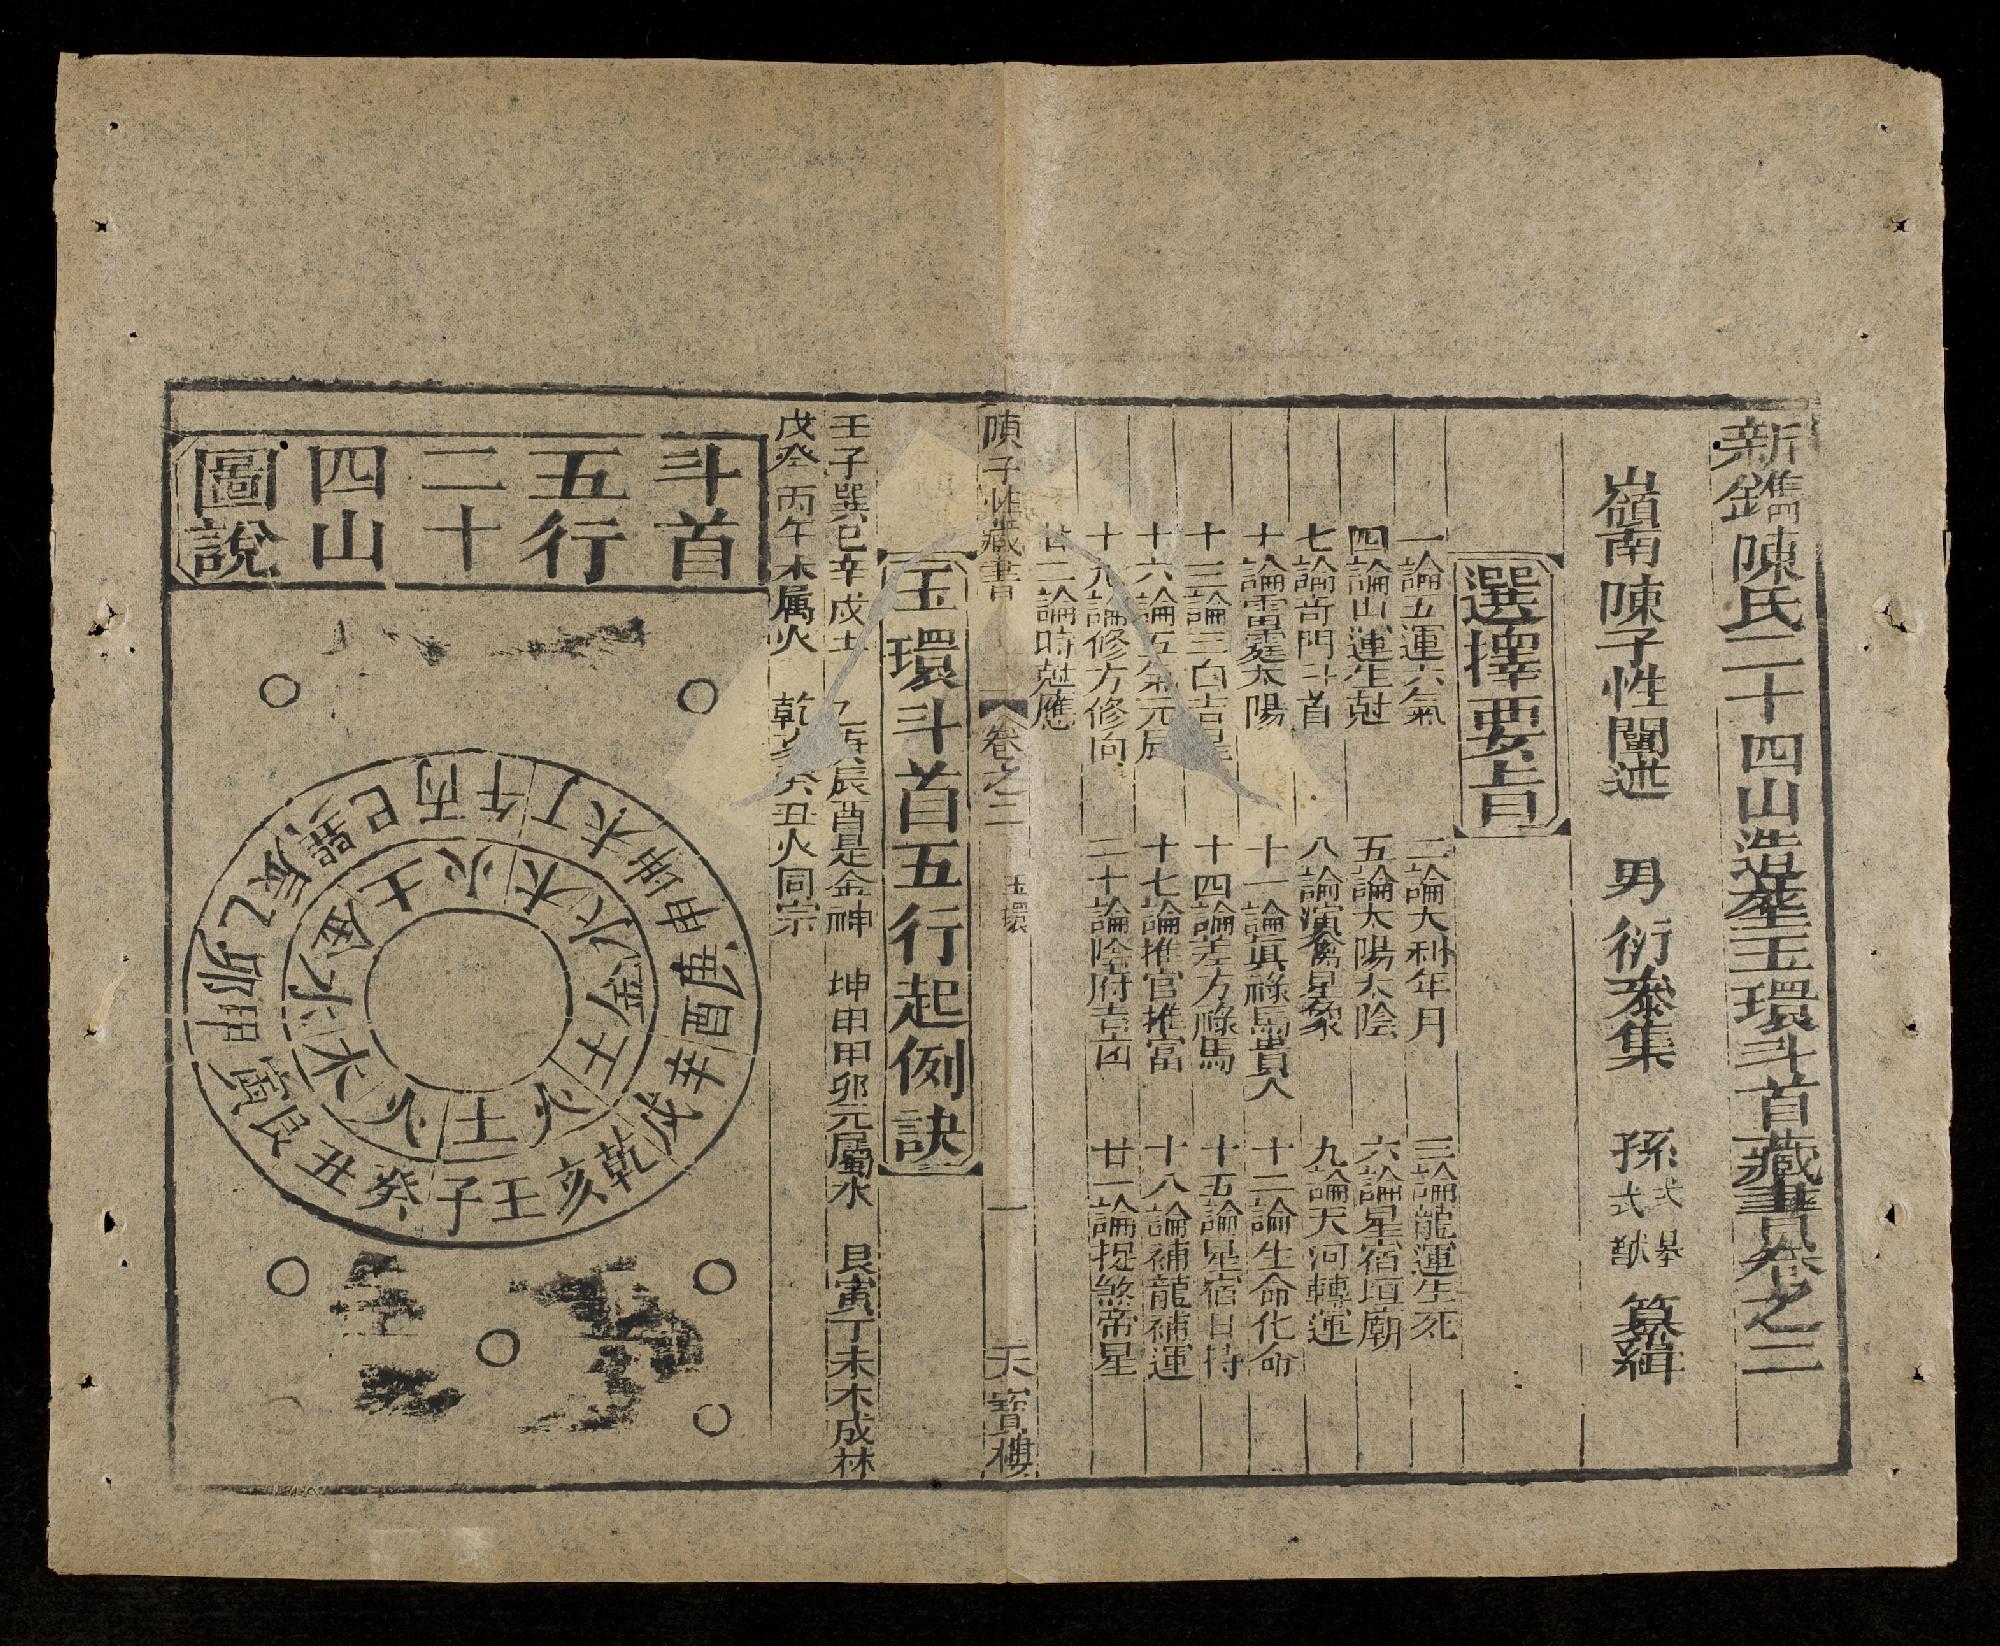 新鐫陳氏二十四山造塟玉環斗首藏書卷之二
嶺南陳子性闡述 男衍泰集 孫式式纂緝
選擇要㫖
一論五運六氣 二論大利年月 三論龍運生死
四論山運生尅 五論太陽太陰 六論星宿垣廟
七論竒門斗首 八論演禽星象 九論天河轉運
十論雷霆太陽 十一論眞祿馬貴人 十二論生命化命
十三論三白吉星 十四論差方祿馬 十五論星宿日時
十六論五氣元辰 十七論推官推富 十八論補龍補運
十九論修方修向 二十論陰府吉凶 廿一論捉煞帝星
廿二論時尅應
陳子性藏書 卷之二 玉環 一 天寶樓
玉環斗首五行起例訣
壬子巽巳辛戌土 乙庚辰酉是金神 坤申甲卯元屬水 艮寅丁未木成林
戊癸丙午本属火 乾亥癸丑火同宗
斗首
五行
二十
四山
圖說
壬子癸丑艮寅甲卯乙辰巽巳丙午丁未坤申庚酉辛戌乾亥
土火木水金土火木水金土火